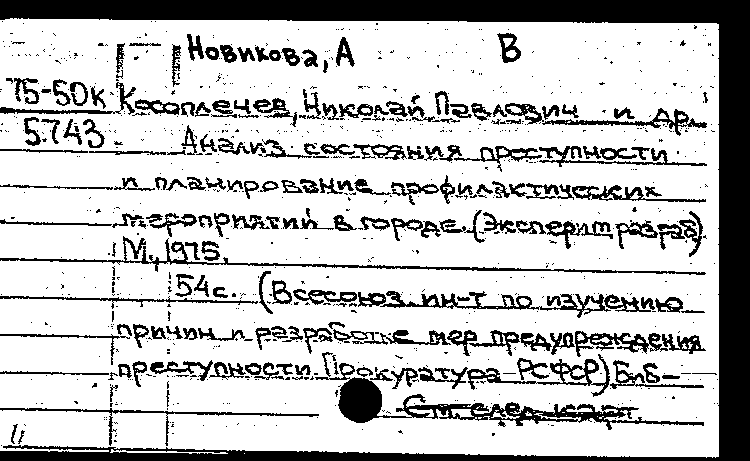 Новикова, А В
75-50к Косоплечев, Николай Павлович и др.
5743 Анализ состояния преступности
и планирование профилактических
мероприятий в городе. (Эксперим разраб)
М., 1975.
54с. (Всесоюз. ин-т по изучению
причин и разработке мер предупреждения
преступности Прокуратура РСФСР) Биб-
См. след. карт.